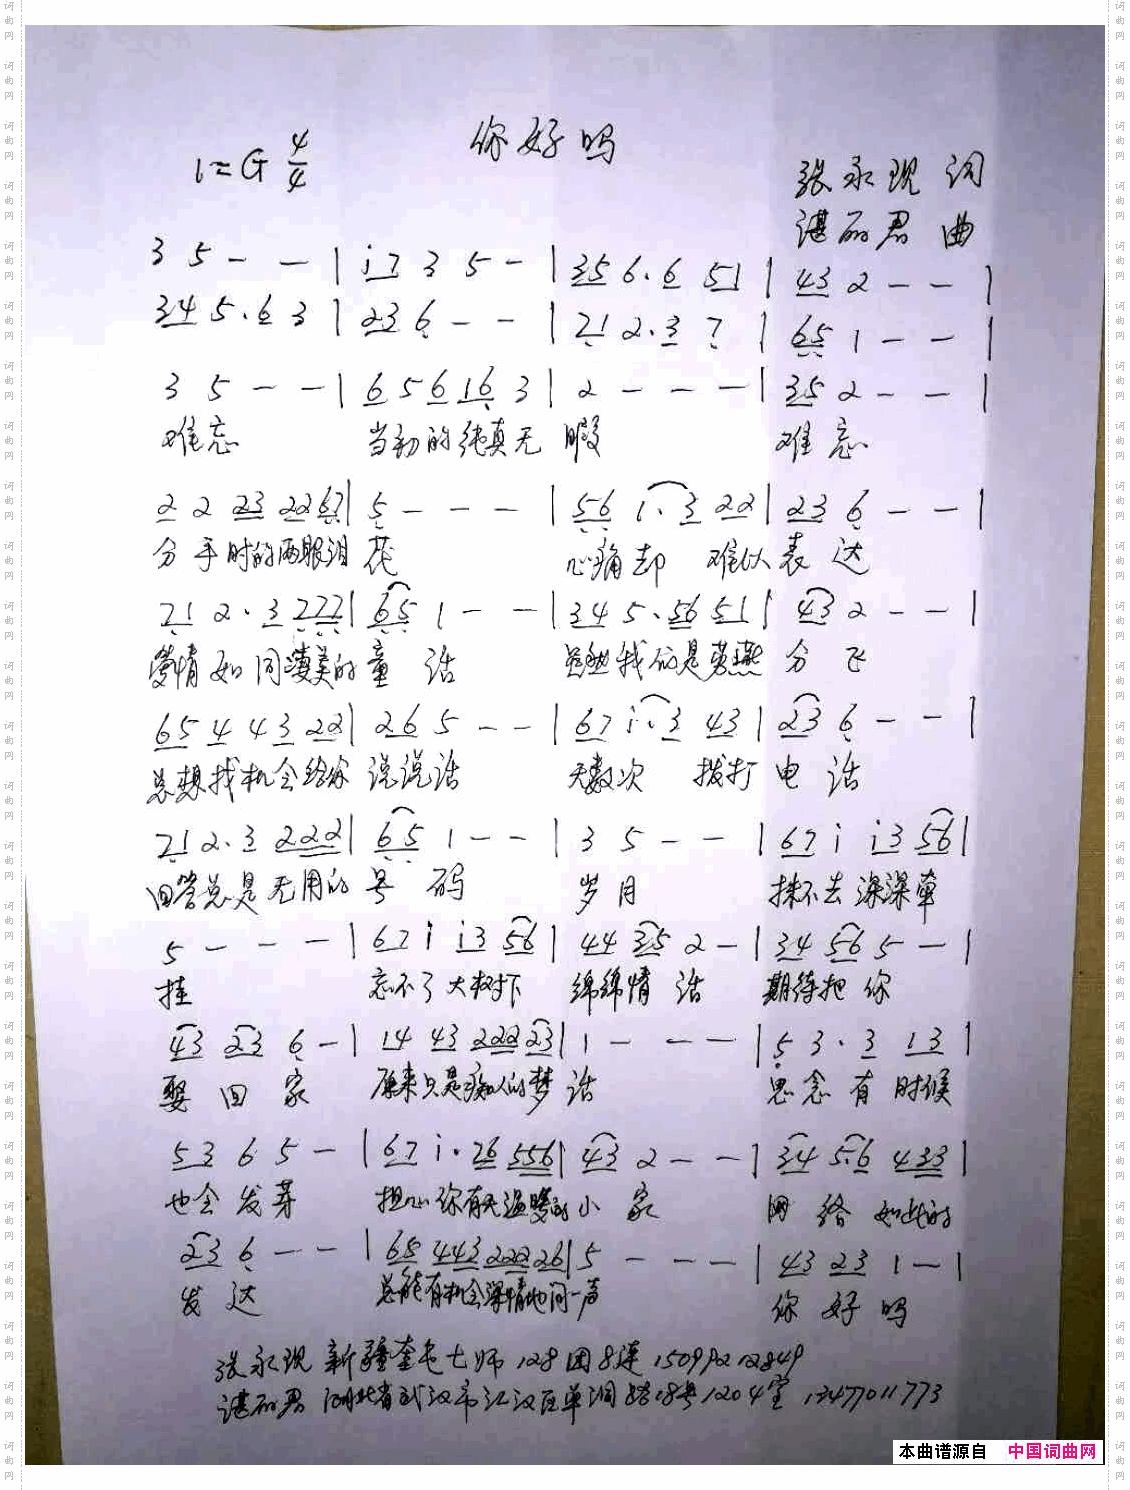 你好吗
1=G 4/4
张永现 词
谌丽君 曲
3 5 - - | i7 3 5 - | 356.6 51 | 43 2 - - |
345.63 | 236 - - | 212.3 7 | 65 1 - - |
3 5 - - | 656163 | 2 - - - | 35 2 - - |
难忘 当初的纯真无 暇 难忘
2 2 23 2267 | 5 - - - | 56 1.3 22 | 23 6 - - |
分手时的两眼泪 花 心痛却 难以表达
21 2.3 222 | 65 1 - - | 345.56 51 | 43 2 - - |
爱情如同凄美的童话 虽然我们是劳燕分飞
65 4 43 22 | 26 5 - - | 67 i.3 43 | 23 6 - - |
总想找机会给你说说话 无数次 拨打电话
21 2.3 222 | 65 1 - - | 3 5 - - | 67 i i3 56 |
回答总是无用的号码 岁月 抹不去深深牵
5 - - - | 67 i i3 56 | 44 35 2 - | 34 56 5 - |
挂 忘不了大树下 绵绵情话 期待把你
43 23 6 - | 14 43 222 23 | 1 - - - | 5 3.3 13 |
娶回家 原来只是痴人的梦话 思念有时候
53 6 5 - | 67 i.26 556 | 43 2 - - | 34 56 433 |
也会发芽 担心你有无温暖的小家 网络如此的
23 6 - - | 65 443 222 26 | 5 - - - | 43 23 1 - |
发达 总能有机会深情地问一声 你好吗
张永现 新疆奎屯七师128团8连 15099212849
谌丽君 湖北省武汉市江汉区单洞 1204室 13477011773
本曲谱源自 中国词曲网